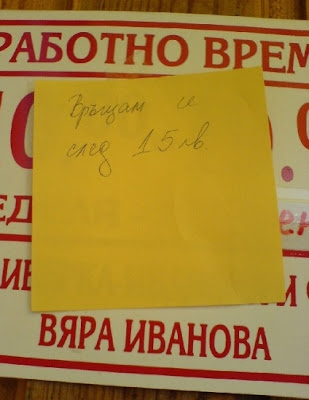 РАБОТНО ВРЕМ
Връщам се
след 15 лв.
ВЯРА ИВАНОВА